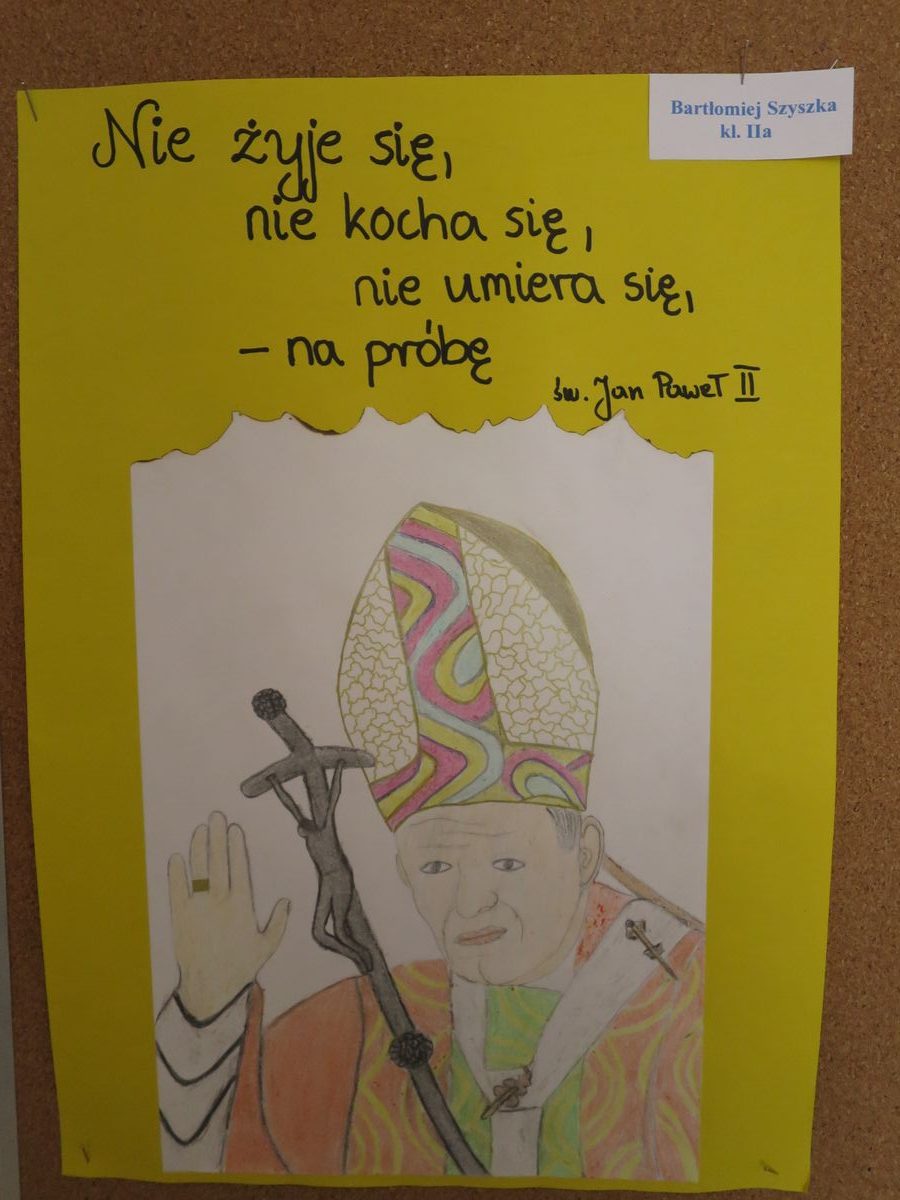 Nie żyje się,
nie kocha się,
nie umiera się,
– na próbę
św. Jan Paweł II
Bartłomiej Szyszka
kl. IIa